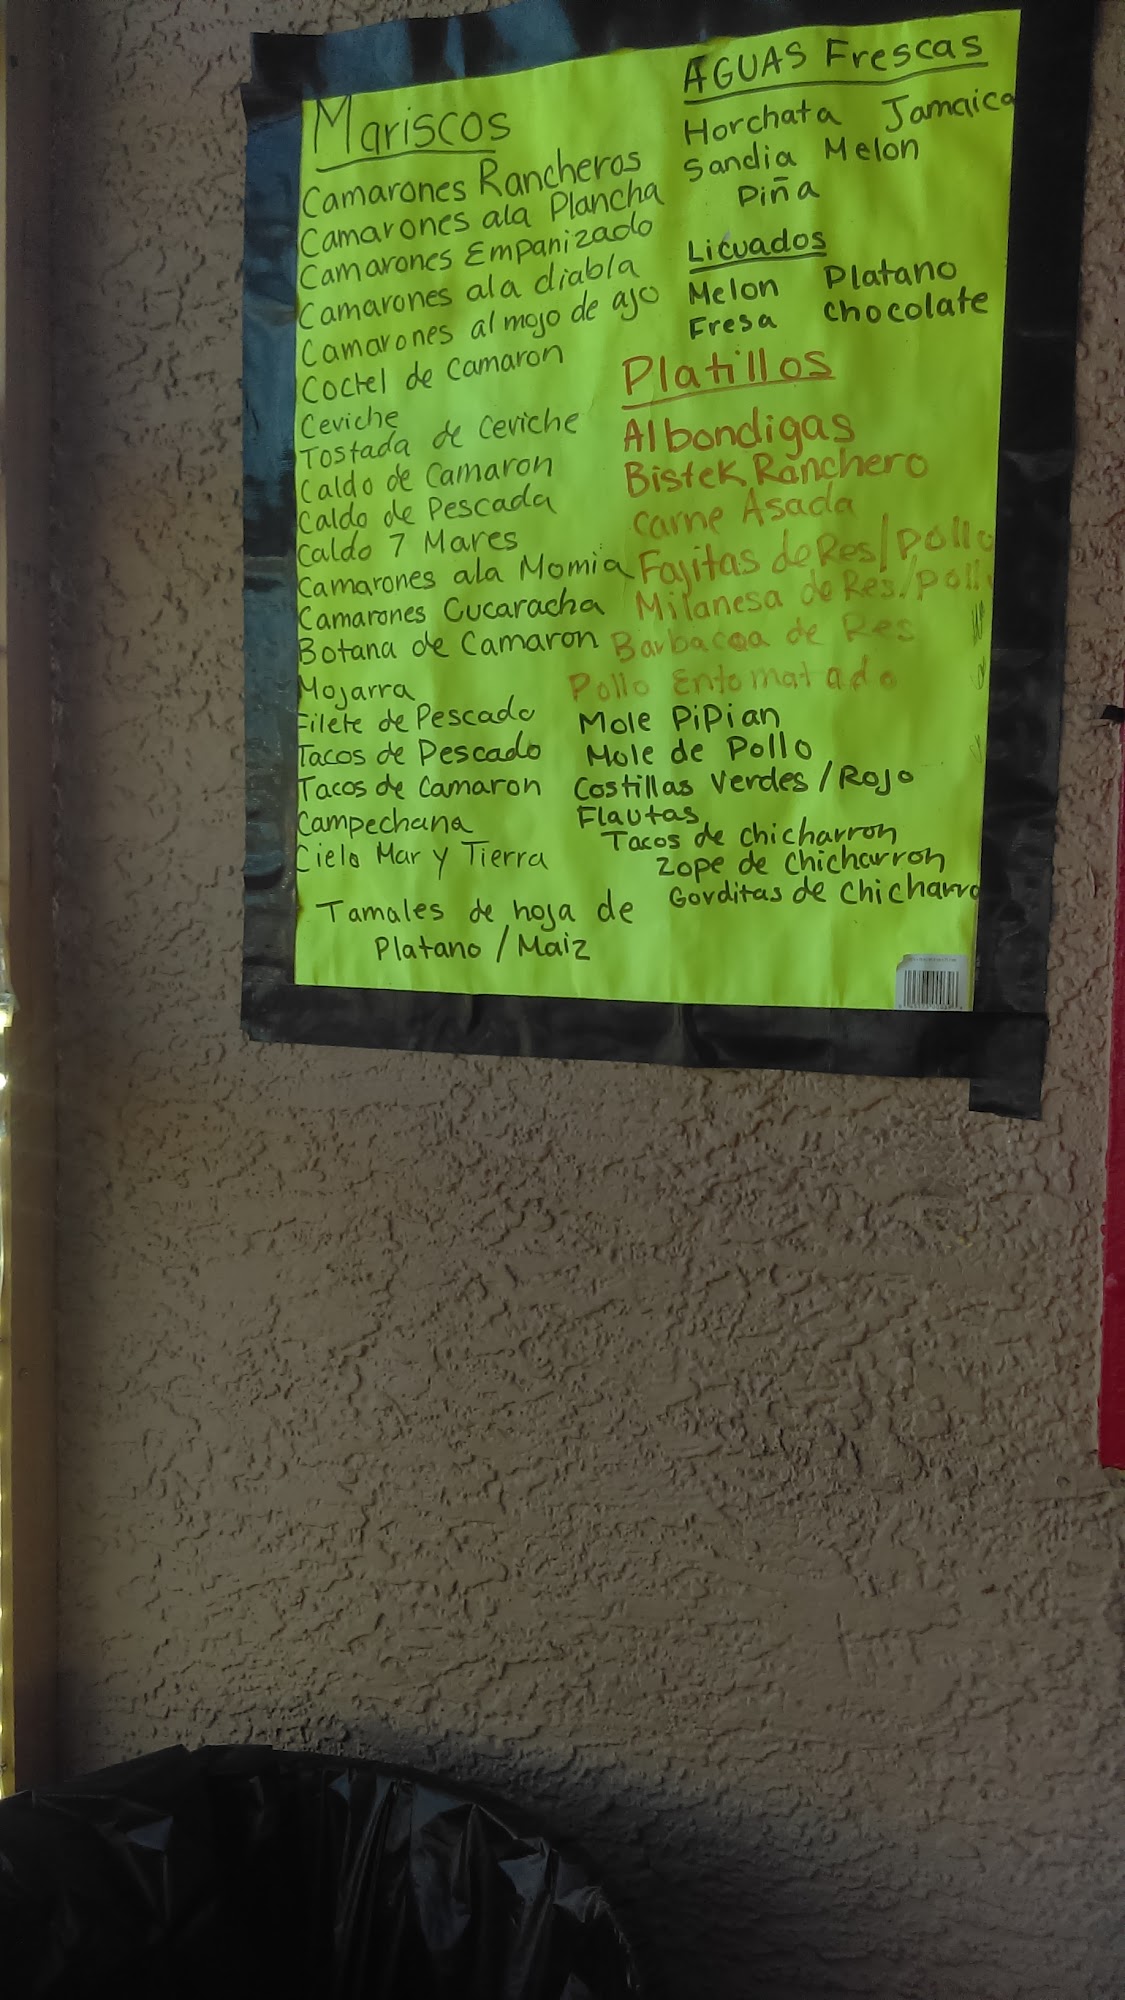 Mariscos
Camarones Rancheros
Camarones ala Plancha
Camarones Empanizado
Camarones ala diabla
Camarones al mojo de ajo
Coctel de Camaron
Ceviche
Tostada de Ceviche
Caldo de Camaron
Caldo de Pescada
Caldo 7 Mares
Camarones ala Momia
Camarones Cucaracha
Botana de Camaron
Mojarra
Filete de Pescado
Tacos de Pescado
Tacos de Camaron
Campechana
Cielo Mar y Tierra
Tamales de hoja de
Platano / Maiz
AGUAS Frescas
Horchata Jamaica
Sandia Melon
Piña
Licuados
Melon Platano
Fresa chocolate
Platillos
Albondigas
Bistek Ranchero
Carne Asada
Fajitas de Res/Pollo
Milanesa de Res/poll
Barbacoa de Res
Pollo Entomatado
Mole PiPian
Mole de Pollo
Costillas Verdes / Rojo
Flautas
Tacos de chicharron
Zope de chicharron
Gorditas de chicharro